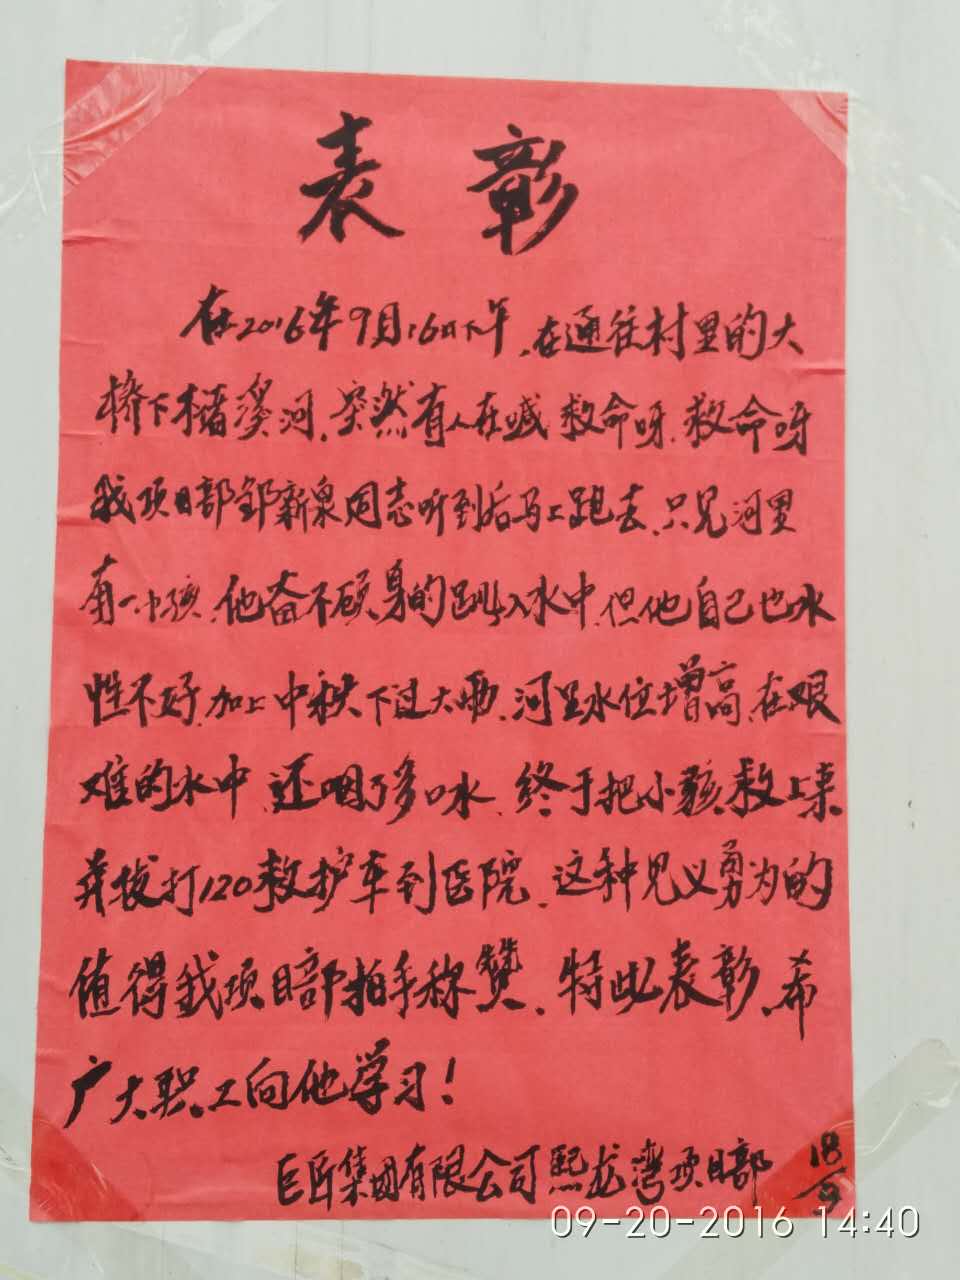 表彰
在2016年9月16日下午,在通往村里的大
桥下楮溪河,突然有人在喊救命呀,救命呀
我项目部邹新泉同志听到后马上跑去,只见河里
有一小孩,他奋不顾身的跳入水中,但他自己也水
性不好,加上中秋下过大雨,河里水位增高,在艰
难的水中,还咽了多口水,终于把小孩救上来
并拨打120救护车到医院,这种见义勇为的
值得我项目部拍手称赞,特此表彰,希
广大职工向他学习!
巨匠集团有限公司熙龙湾项目部 18/9
09-20-2016 14:40